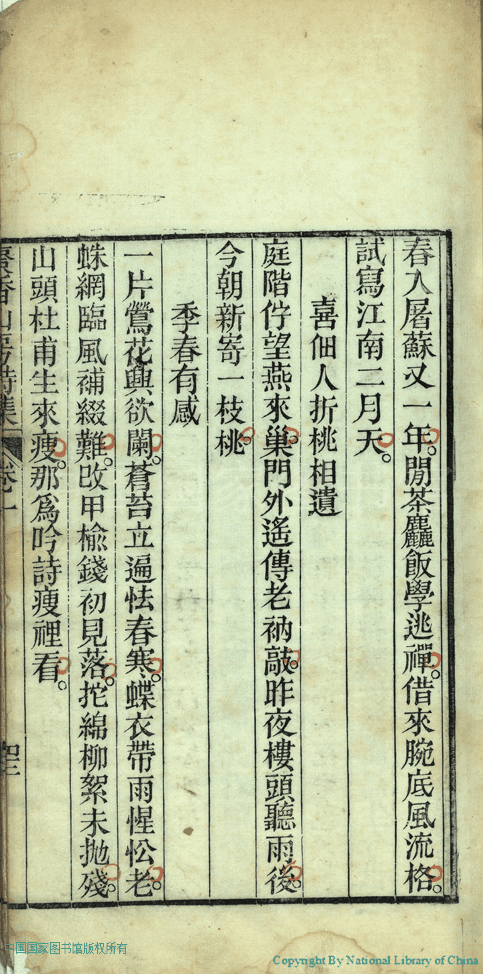 春入屠蘇又一年。閒茶麤飯學逃禪。借來腕底風流格。
試寫江南二月天。
喜佃人折桃相遺
庭階佇望燕來巢。門外遙傳老衲敲。昨夜樓頭聽雨後。
今朝新寄一枝桃。
季春有感
一片鶯花興欲闌。蒼苔立遍怯春寒。蝶衣帶雨惺忪老。
蛛網臨風補綴難。改甲榆錢初見落。拕綿柳絮未拋殘。
山頭杜甫生來瘦。那為吟詩瘦裡看。
香山房詩集 卷一
中国国家图书馆版权所有
Copyright By National Library of China